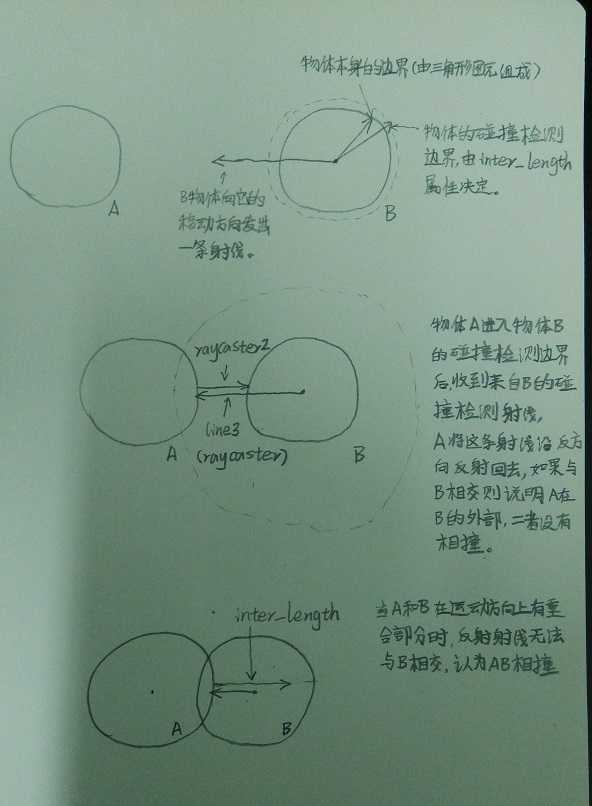 物体本身的边界(由三角形图元组成)
物体的碰撞检测
边界,由inter_length
属性决定。
A
B
B物体向它的
移动方向发出
一条射线。
物体A进入物体B
的碰撞检测边界
后,收到来自B的碰
撞检测射线,
A将这条射线沿反方
向反射回去,如果与
B相交则说明A在
B的外部,二者没有
相撞。
raycaster2
line3
(raycaster)
A
B
inter_length
当A和B在运动方向上有重
合部分时,反射射线无法
与B相交,认为AB相撞
A
B